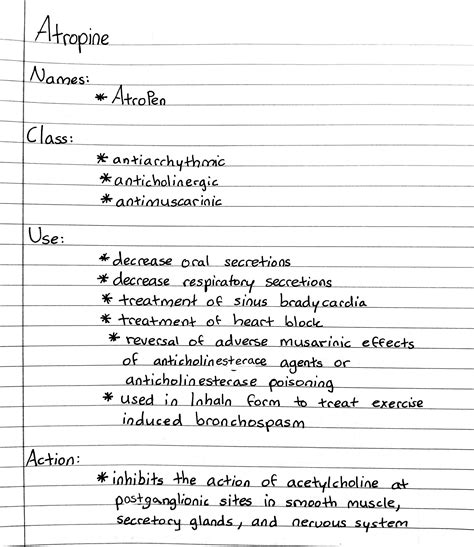 Atropine
Names:
* AtroPen
Class:
* antiarrhythmic
* anticholinergic
* antimuscarinic
Use:
* decrease oral secretions
* decrease respiratory secretions
* treatment of sinus bradycardia
* treatment of heart block
* reversal of adverse musarinic effects
of anticholinesterace agents or
anticholinesterase poisoning
* used in Inhaln form to treat exercise
induced bronchospasm
Action:
* inhibits the action of acetylcholine at
postganglionic sites in smooth muscle,
secretory glands, and nervous system